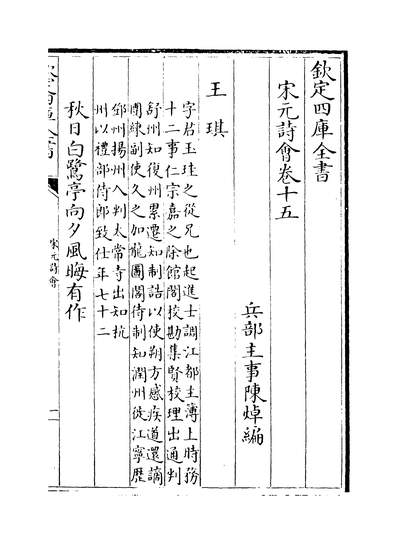 欽定四庫全書
宋元詩會卷十五
兵部主事陳焯編
王琪
字君玉珪之從兄也起進士調江都主簿上時務
十二事仁宗嘉之除館閣校勘集賢校理出通判
舒州知復州累遷知制誥以使朔方感疾道還謫
團練副使久之加龍圖閣待制知潤州徙江寧歷
鄧州揚州入判太常寺出知杭
州以禮部侍郎致仕年七十二
秋日白鷺亭向夕風晦有作
宋元詩會
一